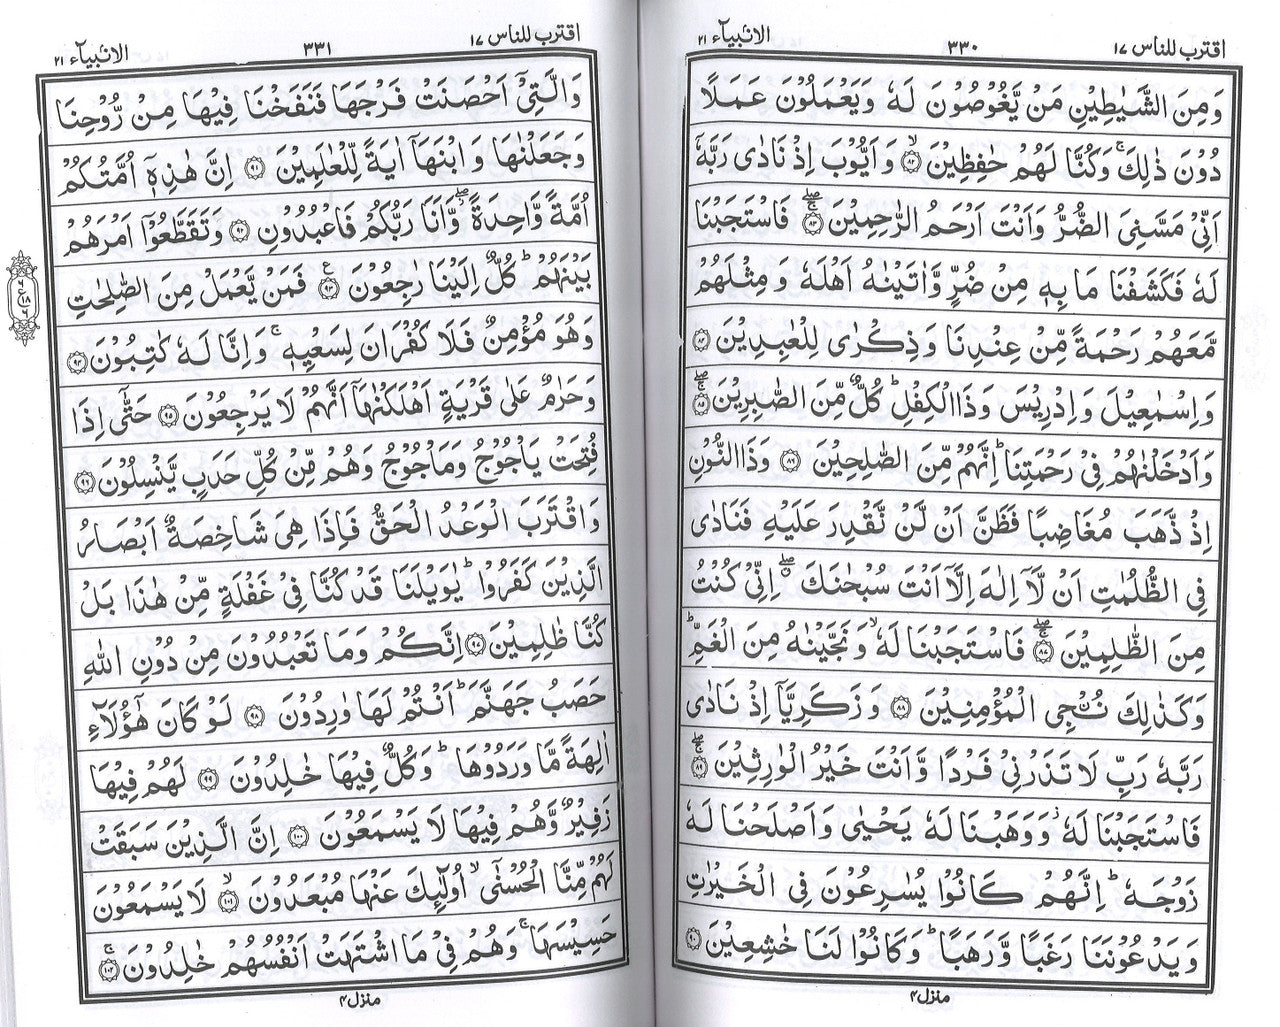 اقترب للناس ١٧ ٣٣٠ الانبياء ٢١
وَمِنَ الشَّيٰطِيْنِ مَنْ يَّغُوْصُوْنَ لَهٗ وَيَعْمَلُوْنَ عَمَلًا
دُوْنَ ذٰلِكَ ۚ وَكُنَّا لَهُمْ حٰفِظِيْنَ ۙ‏﴿۸۲﴾ وَاَيُّوْبَ اِذْ نَادٰى رَبَّهٗۤ
اَنِّىْ مَسَّنِىَ الضُّرُّ وَاَنْتَ اَرْحَمُ الرّٰحِمِيْنَ ۖۚ ﴿۸۳﴾ فَاسْتَجَبْنَا
لَهٗ فَكَشَفْنَا مَا بِهٖ مِنْ ضُرٍّ وَّاٰتَيْنٰهُ اَهْلَهٗ وَمِثْلَهُمْ
مَّعَهُمْ رَحْمَةً مِّنْ عِنْدِنَا وَذِكْرٰى لِلْعٰبِدِيْنَ ﴿۸۴﴾
وَاِسْمٰعِيْلَ وَاِدْرِيْسَ وَذَا الْكِفْلِ ؕ كُلٌّ مِّنَ الصّٰبِرِيْنَ ۖۚ ﴿۸۵﴾
وَاَدْخَلْنٰهُمْ فِىْ رَحْمَتِنَا ؕ اِنَّهُمْ مِّنَ الصّٰلِحِيْنَ ﴿۸۶﴾ وَذَا النُّوْنِ
اِذْ ذَّهَبَ مُغَاضِبًا فَظَنَّ اَنْ لَّنْ نَّقْدِرَ عَلَيْهِ فَنَادٰى
فِى الظُّلُمٰتِ اَنْ لَّاۤ اِلٰهَ اِلَّاۤ اَنْتَ سُبْحٰنَكَ ۖ اِنِّىْ كُنْتُ
مِنَ الظّٰلِمِيْنَ ۖۚ ﴿۸۷﴾ فَاسْتَجَبْنَا لَهٗ ۙ وَنَجَّيْنٰهُ مِنَ الْغَمِّ ؕ
وَكَذٰلِكَ نُـنْجِى الْمُؤْمِنِيْنَ ﴿۸۸﴾ وَزَكَرِيَّاۤ اِذْ نَادٰى
رَبَّهٗ رَبِّ لَا تَذَرْنِىْ فَرْدًا وَّاَنْتَ خَيْرُ الْوٰرِثِيْنَ ۖۚ ﴿۸۹﴾
فَاسْتَجَبْنَا لَهٗ ؗ وَوَهَبْنَا لَهٗ يَحْيٰى وَاَصْلَحْنَا لَهٗ
زَوْجَهٗ ؕ اِنَّهُمْ كَانُوْا يُسٰرِعُوْنَ فِى الْخَيْرٰتِ
وَيَدْعُوْنَنَا رَغَبًا وَّرَهَبًا ؕ وَكَانُوْا لَنَا خٰشِعِيْنَ ﴿۹۰﴾
منزل ۴
اقترب للناس ١٧ ٣٣١ الانبياء ٢١
وَالَّتِىْۤ اَحْصَنَتْ فَرْجَهَا فَنَفَخْنَا فِيْهَا مِنْ رُّوْحِنَا
وَجَعَلْنٰهَا وَابْنَهَاۤ اٰيَةً لِّلْعٰلَمِيْنَ ﴿۹۱﴾ اِنَّ هٰذِهٖۤ اُمَّتُكُمْ
اُمَّةً وَّاحِدَةً ۖ وَّاَنَا رَبُّكُمْ فَاعْبُدُوْنِ ﴿۹۲﴾ وَتَقَطَّعُوْۤا اَمْرَهُمْ
بَيْنَهُمْ ؕ كُلٌّ اِلَيْنَا رٰجِعُوْنَ ﴿۹۳﴾ ع فَمَنْ يَّعْمَلْ مِنَ الصّٰلِحٰتِ
وَهُوَ مُؤْمِنٌ فَلَا كُفْرَانَ لِسَعْيِهٖ ۚ وَاِنَّا لَهٗ كٰتِبُوْنَ ﴿۹۴﴾
وَحَرٰمٌ عَلٰى قَرْيَةٍ اَهْلَكْنٰهَاۤ اَنَّهُمْ لَا يَرْجِعُوْنَ ﴿۹۵﴾ حَتّٰٓى اِذَا
فُتِحَتْ يَاْجُوْجُ وَمَاْجُوْجُ وَهُمْ مِّنْ كُلِّ حَدَبٍ يَّنْسِلُوْنَ ﴿۹۶﴾
وَاقْتَرَبَ الْوَعْدُ الْحَقُّ فَاِذَا هِىَ شَاخِصَةٌ اَبْصَارُ
الَّذِيْنَ كَفَرُوْا ؕ يٰوَيْلَنَا قَدْ كُنَّا فِىْ غَفْلَةٍ مِّنْ هٰذَا بَلْ
كُنَّا ظٰلِمِيْنَ ﴿۹۷﴾ اِنَّكُمْ وَمَا تَعْبُدُوْنَ مِنْ دُوْنِ اللّٰهِ
حَصَبُ جَهَنَّمَ ؕ اَنْتُمْ لَهَا وٰرِدُوْنَ ﴿۹۸﴾ لَوْ كَانَ هٰٓؤُلَاۤءِ
اٰلِهَةً مَّا وَرَدُوْهَا ؕ وَكُلٌّ فِيْهَا خٰلِدُوْنَ ﴿۹۹﴾ لَهُمْ فِيْهَا
زَفِيْرٌ وَّهُمْ فِيْهَا لَا يَسْمَعُوْنَ ﴿۱۰۰﴾ اِنَّ الَّذِيْنَ سَبَقَتْ
لَهُمْ مِّنَّا الْحُسْنٰٓى ۙ اُولٰٓئِكَ عَنْهَا مُبْعَدُوْنَ ۙ ﴿۱۰۱﴾ لَا يَسْمَعُوْنَ
حَسِيْسَهَا ۚ وَهُمْ فِىْ مَا اشْتَهَتْ اَنْفُسُهُمْ خٰلِدُوْنَ ۚ ﴿۱۰۲﴾
منزل ۴